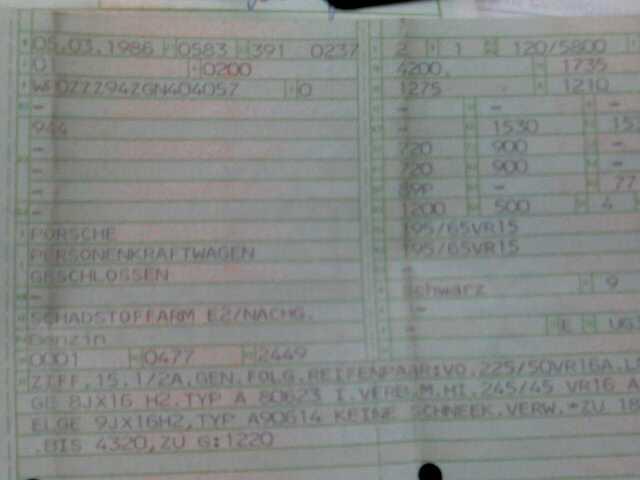 05.03.1986 0583 391 0237 2 1 120/5800
0 0200 4200. 1735
WP0ZZZ94ZGN404057 0 1275 1210
- - - -
944 - 1530
- 720 900 -
- 720 900 -
- 89P - 77
- 1200 500 4
PORSCHE 195/65VR15
PERSONENKRAFTWAGEN 195/65VR15
GESCHLOSSEN -
- schwarz 9
SCHADSTOFFARM E2/NACHG. -
Benzin E
0001 0477 2449
ZIFF.15.1/2A.GEN.FOLG.REIFENPAAR:VO.225/50VR16A.
GE 8JX16 H2.TYP A 80623 I.VERB.M.HI.245/45 VR16 A
ELGE 9JX16H2,TYP A90614 KEINE SCHNEEK.VERW.*ZU
.BIS 4320,ZU G:1220